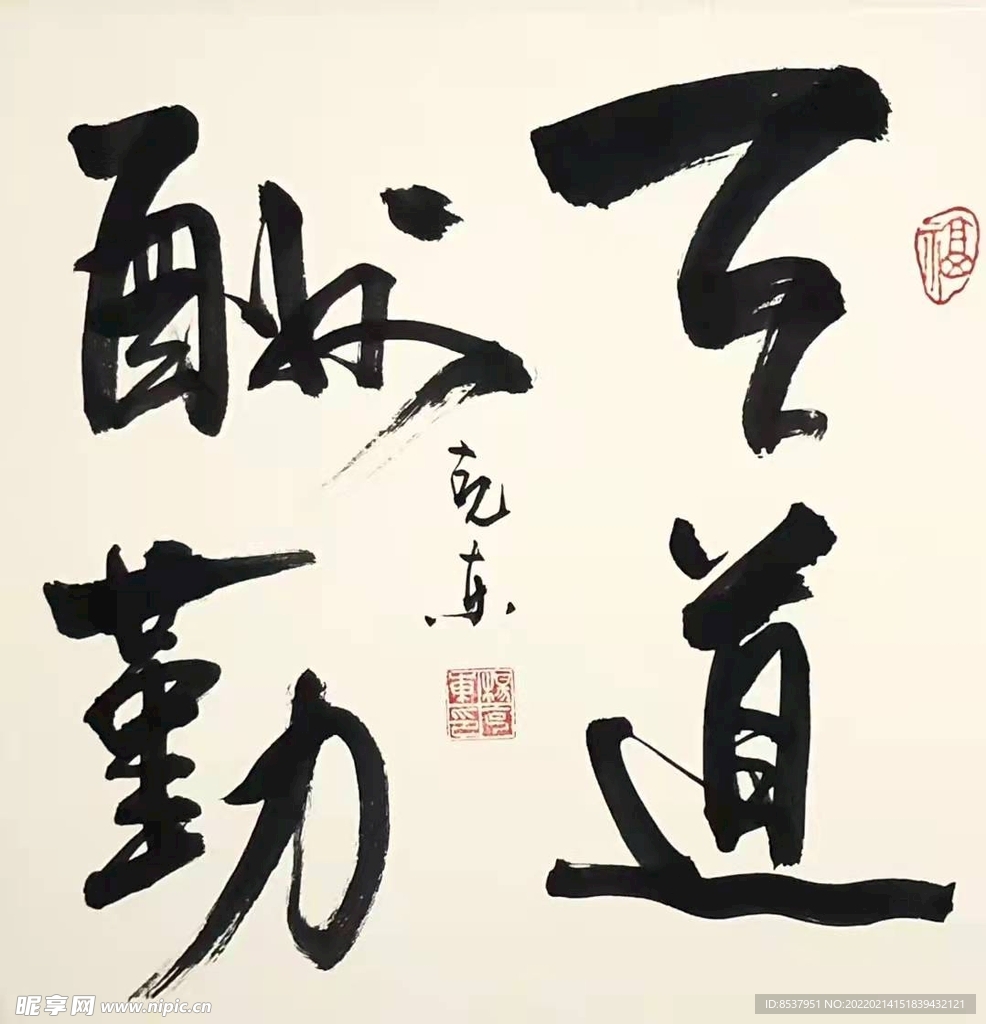 天道
酬勤
克东
楊克
東印
福
昵享网 www.nipic.cn
ID:8537951 NO:20220214151839432121